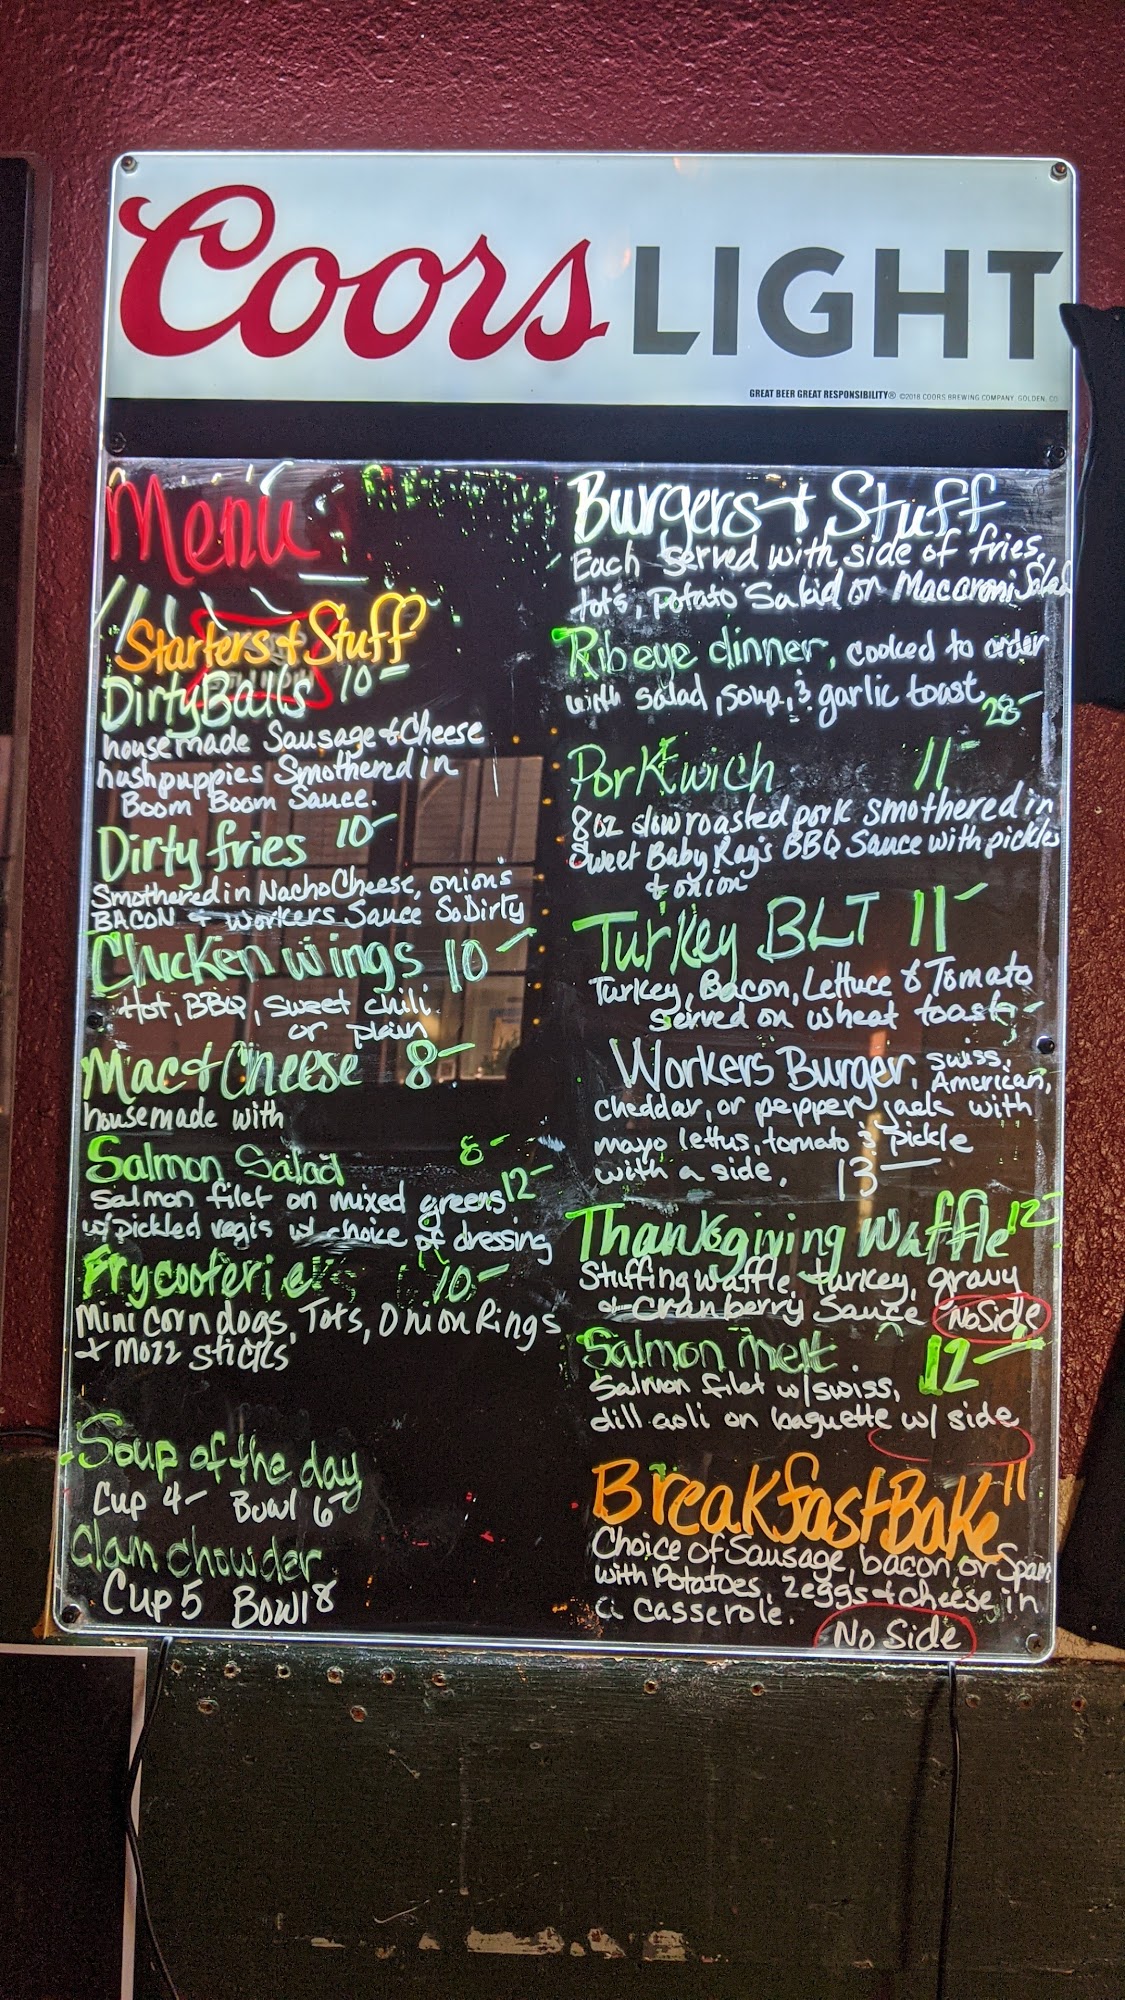 Coors LIGHT
GREAT BEER GREAT RESPONSIBILITY® ©2018 COORS BREWING COMPANY, GOLDEN, CO
Menu
Starters & Stuff
Dirty Balls 10-
housemade Sausage & Cheese
hushpuppies Smothered in
Boom Boom Sauce.
Dirty fries 10-
Smothered in Nacho Cheese, onions
BACON & Workers Sauce So Dirty
Chicken wings 10-
Hot, BBQ, Sweet chili
or plain
Mac & Cheese 8-
housemade with
8-
Salmon Salad
Salmon filet on mixed greens 12-
w/pickled vegis w/ choice of dressing
Frycooteries 10-
Mini corn dogs, Tots, Onion Rings
+ Mozz sticks
Soup of the day
Cup 4- Bowl 6-
Clam chowder
Cup 5 Bowl 8
Burgers & Stuff
Each served with side of fries,
tots, potato Salad or Macaroni Salad
Ribeye dinner, cooked to order
with salad, soup, & garlic toast
28-
Porkwich 11-
8oz slow roasted pork smothered in
Sweet Baby Ray's BBQ Sauce with pickles
& onion
Turkey BLT 11-
Turkey, Bacon, Lettuce & Tomato
served on wheat toast
Workers Burger, swiss,
American,
cheddar, or pepper jack with
mayo lettus, tomato & pickle
with a side. 13-
Thanksgiving Waffle 12-
Stuffing waffle, turkey, gravy
& Cranberry Sauce No Side
Salmon melt 12-
Salmon filet w/swiss,
dill aoli on baguette w/ side
Breakfast Bake 11
Choice of Sausage, bacon, or Spam
with Potatoes, 2 eggs & cheese in
a casserole.
No Side